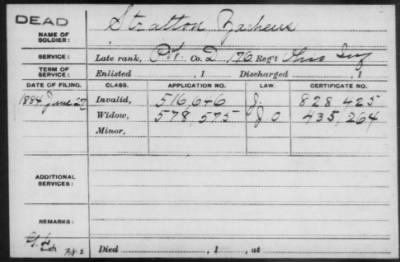 DEAD
NAME OF SOLDIER: Stratton Zacheus
SERVICE: Late rank, Pt. Co. D, 176 Reg't Ohio Inf
TERM OF SERVICE: Enlisted , 1 Discharged , 1
DATE OF FILING. CLASS. APPLICATION NO. LAW. CERTIFICATE NO.
1884 June 27 Invalid, 516,646 J. 828,425
Widow, 578,575 J O 435,264
Minor,
ADDITIONAL SERVICES:
REMARKS:
Died , 1 , at